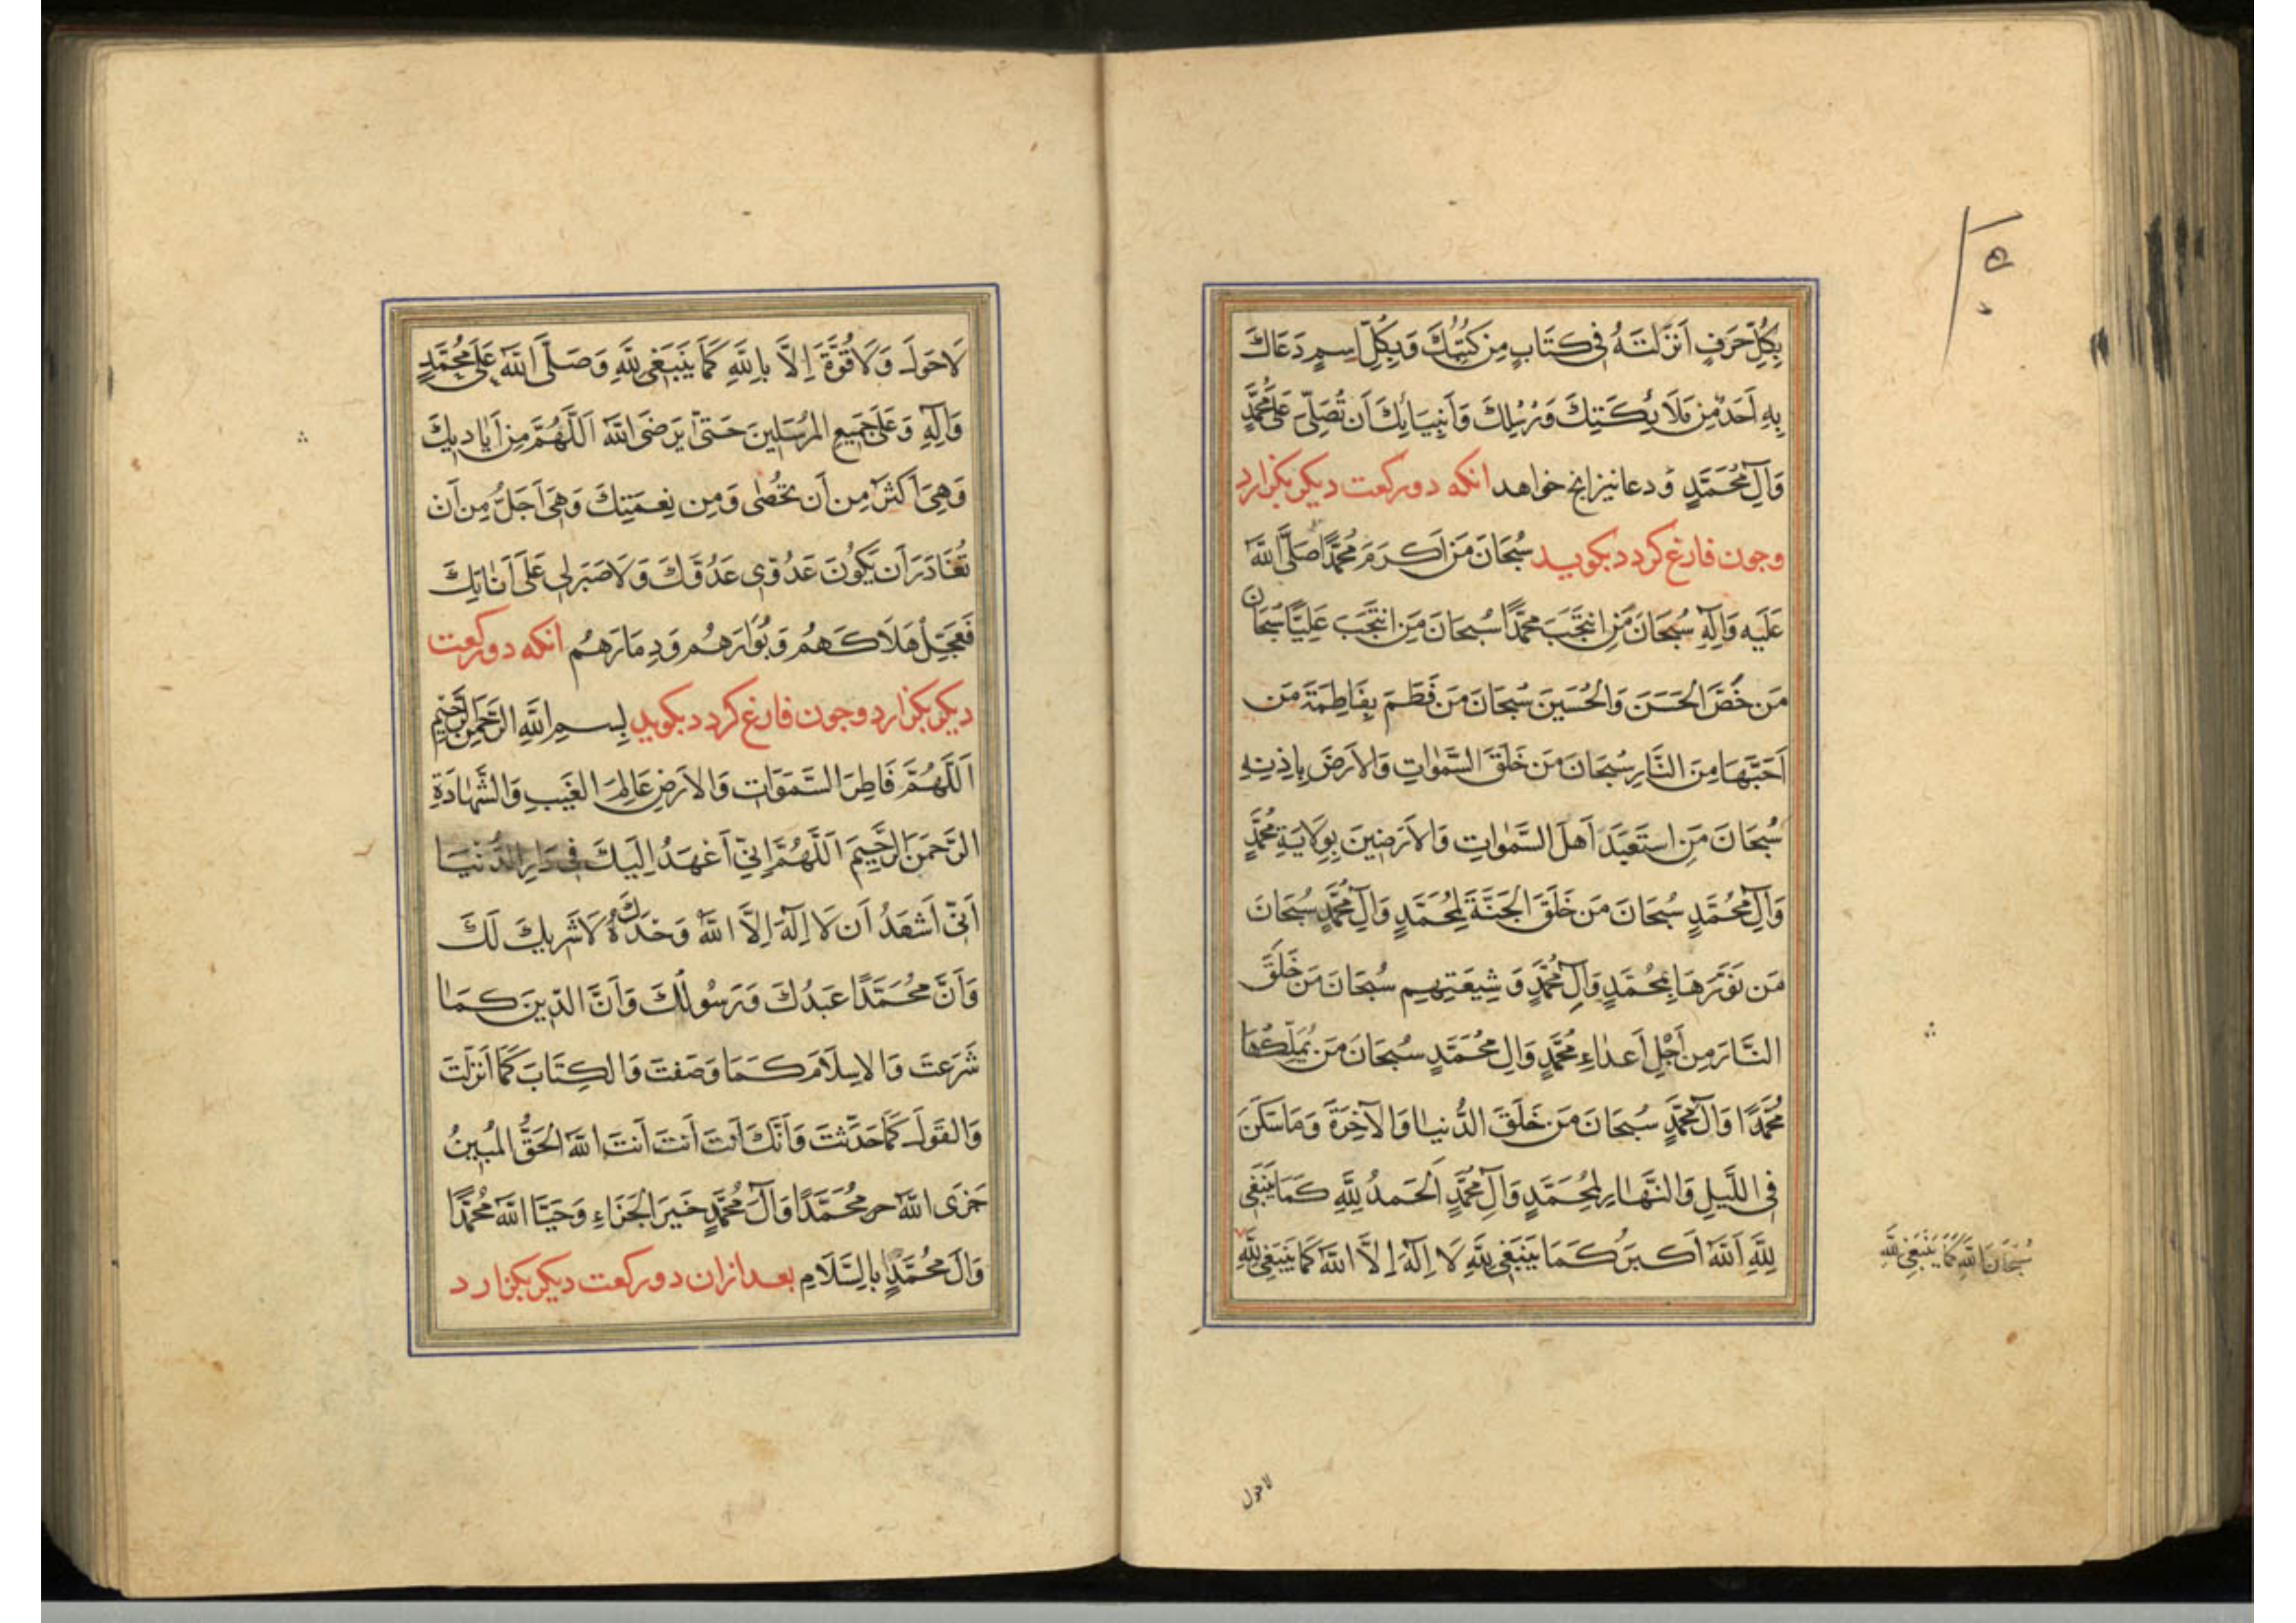 بِكُلِّ حَرَفٍ اَنزَلتَهُ فى كِتَابٍ مِن كُتُبِكَ وَبِكُلِّ اِسمٍ دَعَاكَ
بِهِ اَحَدٌ مِن مَلَائِكَتِكَ وَرُسُلِكَ وَاَنبِيَائِكَ اَن تُصَلِّىَ عَلىٰ مُحَمَّدٍ
وَآلِ مُحَمَّدٍ وَ دعا نیز انچ خواهد انکه دو رکعت دیکر بکزارد
وجون فارغ کردد بکوید سُبحَانَ مَن اَكرَمَ مُحَمَّدًا صَلَّى اللهُ
عَلَيهِ وَآلِهِ سُبحَانَ مَنِ انتَجَبَ مُحَمَّدًا سُبحَانَ مَنِ انتَجَبَ عَلِيًّا سُبحَانَ
مَن خَصَّ الحَسَنَ وَالحُسَينَ سُبحَانَ مَن فَطَمَ بِفَاطِمَةَ مَن
اَحَبَّهَا مِنَ النَّارِ سُبحَانَ مَن خَلَقَ السَّمٰوَاتِ وَالاَرضَ بِاِذنِهِ
سُبحَانَ مَنِ استَعبَدَ اَهلَ السَّمٰوَاتِ وَالاَرَضِينَ بِوِلَايَةِ مُحَمَّدٍ
وَآلِ مُحَمَّدٍ سُبحَانَ مَن خَلَقَ الجَنَّةَ لِمُحَمَّدٍ وَآلِ مُحَمَّدٍ سُبحَانَ
مَن نَوَّرَهَا بِمُحَمَّدٍ وَآلِ مُحَمَّدٍ وَ شِيعَتِهِم سُبحَانَ مَن خَلَقَ
النَّارَ مِن اَجلِ اَعدَاءِ مُحَمَّدٍ وَالِ مُحَمَّدٍ سُبحَانَ مَن يُمَلِّكُهَا
مُحَمَّدًا وَالَ مُحَمَّدٍ سُبحَانَ مَن خَلَقَ الدُّنيَا وَالآخِرَةَ وَمَا سَكَنَ
فى اللَّيلِ وَالنَّهَارِ لِمُحَمَّدٍ وَآلِ مُحَمَّدٍ اَلحَمدُ لِلّهِ كَمَا يَنبَغى
لِلّهِ اَللهُ اَكبَرُ كَمَا يَنبَغى لِلّهِ لَا اِلٰهَ اِلَّا اللهُ كَمَا يَنبَغى لِلّهِ
سُبحَانَ اللهِ كَمَا يَنبَغى لِلّهِ
لاحول
لَاحَولَ وَلَاقُوَّةَ اِلَّا بِاللهِ كَمَا يَنبَغى لِلّهِ وَصَلَّى اللهُ عَلىٰ مُحَمَّدٍ
وَآلِهِ وَعَلىٰ جَمِيعِ المُرسَلِينَ حَتّىٰ يَرضَى اللهُ اَللّهُمَّ مِن اَيَادِيكَ
وَهِىَ اَكثَرُ مِن اَن تُحصٰى وَمِن نِعمَتِكَ وَهِىَ اَجَلُّ مِن اَن
تُغَادَرَ اَن يَكُونَ عَدُوّى عَدُوَّكَ وَلَاصَبرَ لى عَلىٰ اَنَاتِكَ
فَعَجِّل هَلَاكَهُم وَبُوَارَهُم وَدِمَارَهُم انکه دو رکعت
دیکر بکزارد وجون فارغ کردد بکوید بِسمِ اللهِ الرَّحمٰنِ الرَّحِيمِ
اَللّهُمَّ فَاطِرَ السَّمَوَاتِ وَالاَرضِ عَالِمَ الغَيبِ وَالشَّهَادَةِ
الرَّحمَنَ الرَّحِيمَ اَللّهُمَّ اِنّى اَعهَدُ اِلَيكَ فى دَارِ الدُّنيَا
اَنّى اَشهَدُ اَن لَا اِلٰهَ اِلَّا اللهُ وَحدَهُ لَاشَرِيكَ لَكَ
وَاَنَّ مُحَمَّدًا عَبدُكَ وَرَسُولُكَ وَاَنَّ الدِّينَ كَمَا
شَرَعتَ وَالاِسلَامَ كَمَا وَصَفتَ وَالكِتَابَ كَمَا اَنزَلتَ
وَالقَولَ كَمَا حَدَّثتَ وَاَنَّكَ اَنتَ اَنتَ اَنتَ اللهُ الحَقُّ المُبِينُ
جَزَى اللهُ مُحَمَّدًا وَآلَ مُحَمَّدٍ خَيرَ الجَزَاءِ وَحَيَّا اللهُ مُحَمَّدًا
وَآلَ مُحَمَّدٍ بِالسَّلَامِ بعد ازان دو رکعت دیکر بکزارد